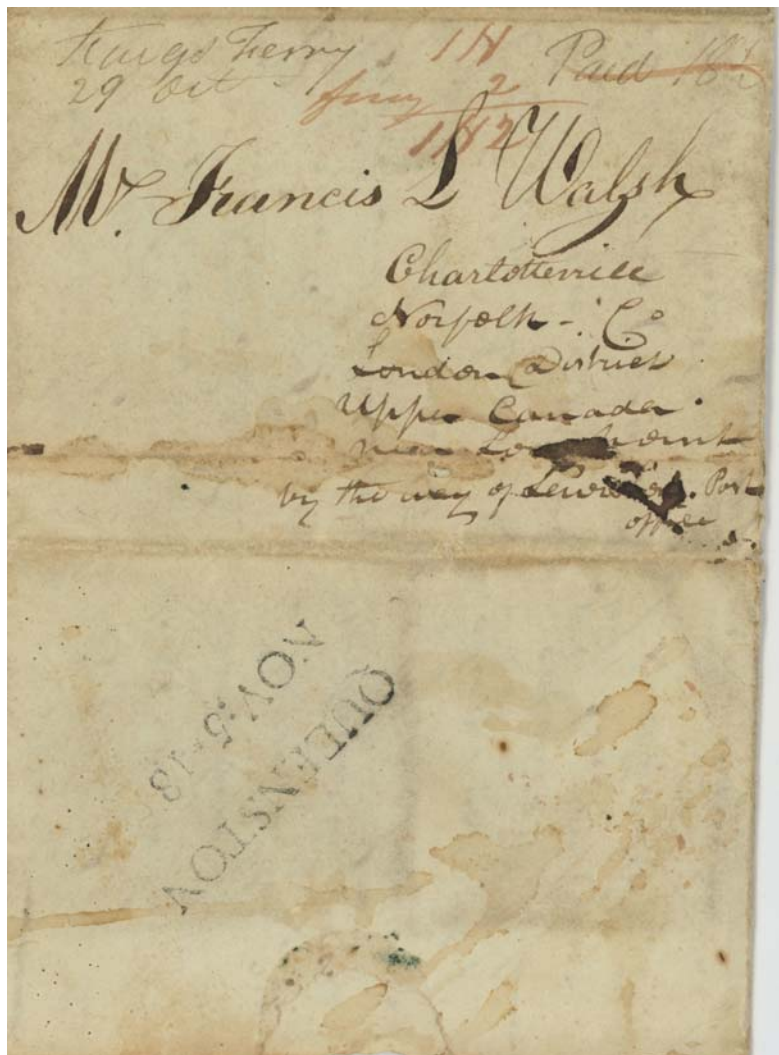 Kings Ferry
29 Oct
Paid 18½
1N
ferry 2
1N2
Mr. Francis L Walsh
Charlotteville
Norfolk - Co
London District
Upper Canada
near Point
by the way of Post
office
QUEENSTON
NOV:5·18